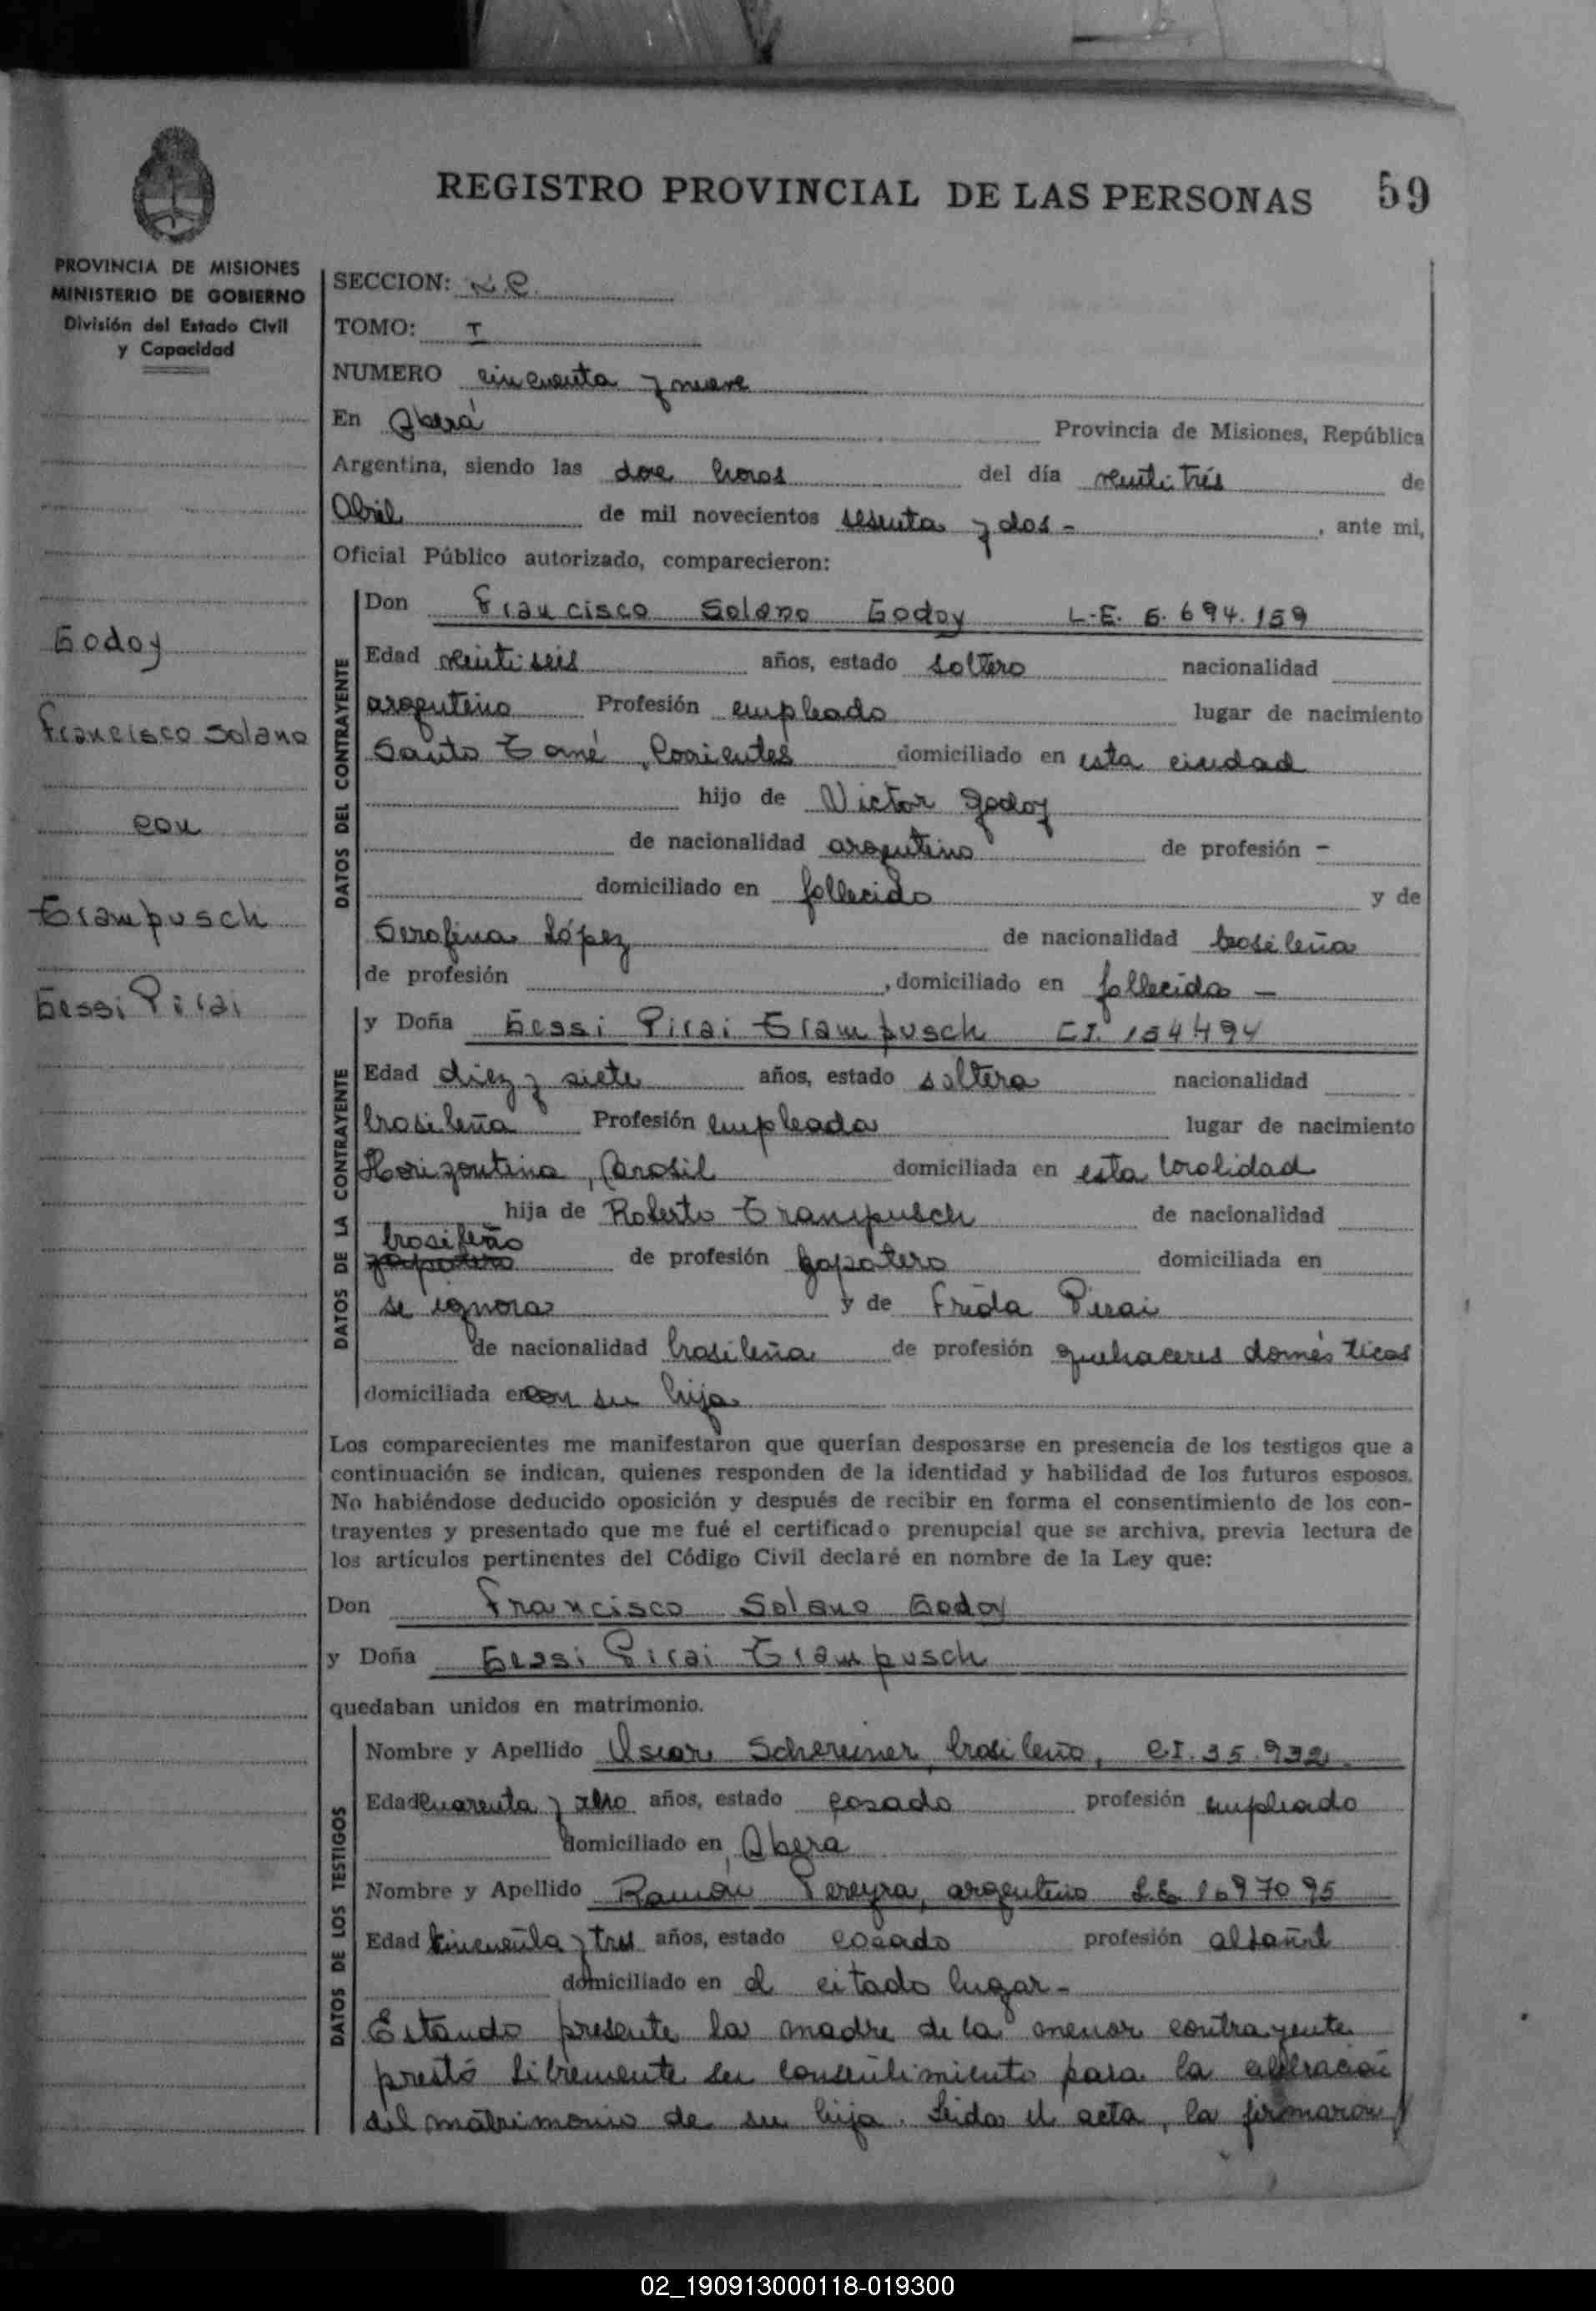 REGISTRO PROVINCIAL DE LAS PERSONAS 59
PROVINCIA DE MISIONES
MINISTERIO DE GOBIERNO
División del Estado Civil
y Capacidad
Godoy
Francisco Solano
con
Trampusch
Gessi Pirai
SECCION:
TOMO: I
NUMERO cincuenta y nueve
En Oberá Provincia de Misiones, República
Argentina, siendo las doce horas del día veintitrés de
Abril de mil novecientos sesenta y dos - , ante mi,
Oficial Público autorizado, comparecieron:
DATOS DEL CONTRAYENTE
Don Francisco Solano Godoy L.E. 5.694.159
Edad veintiseis años, estado soltero nacionalidad
argentino Profesión empleado lugar de nacimiento
Santo Tomé, Corrientes domiciliado en esta ciudad
hijo de Victor Godoy
de nacionalidad argentino de profesión -
domiciliado en fallecido y de
Serafina López de nacionalidad brasileña
de profesión , domiciliado en fallecida -
DATOS DE LA CONTRAYENTE
y Doña Gessi Pirai Trampusch C.I. 154494
Edad diez y siete años, estado soltera nacionalidad
brasileña Profesión empleada lugar de nacimiento
Horizontina, Brasil domiciliada en esta localidad
hija de Roberto Trampusch de nacionalidad
brasileño
zapatero de profesión zapatero domiciliada en
se ignora y de Frida Pirai
de nacionalidad brasileña de profesión quehaceres domésticos
domiciliada en con su hija
Los comparecientes me manifestaron que querían desposarse en presencia de los testigos que a
continuación se indican, quienes responden de la identidad y habilidad de los futuros esposos.
No habiéndose deducido oposición y después de recibir en forma el consentimiento de los con-
trayentes y presentado que me fué el certificado prenupcial que se archiva, previa lectura de
los artículos pertinentes del Código Civil declaré en nombre de la Ley que:
Don Francisco Solano Godoy
y Doña Gessi Pirai Trampusch
quedaban unidos en matrimonio.
DATOS DE LOS TESTIGOS
Nombre y Apellido Oscar Schereiner, brasileño, C.I. 35.932
Edad cuarenta y ocho años, estado casado profesión empleado
domiciliado en Oberá
Nombre y Apellido Ramón Pereyra, argentino L.E. 1697095
Edad cincuenta y tres años, estado casado profesión albañil
domiciliado en el citado lugar -
Estando presente la madre de la menor contrayente
prestó libremente su consentimiento para la celebración
del matrimonio de su hija. Leida el acta, la firmaron
02_190913000118-019300